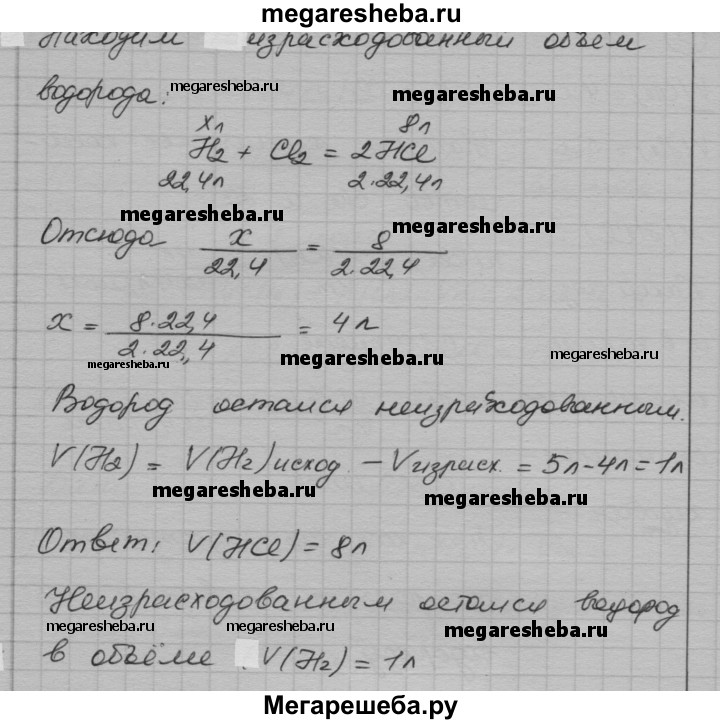 megaresheba.ru
Находим израсходованный объём
водорода: megaresheba.ru megaresheba.ru
xл 8л
H2 + Cl2 = 2HCl
22,4л 2·22,4л
megaresheba.ru megaresheba.ru
Отсюда x/22,4 = 8/2·22,4
x = 8·22,4/2·22,4 = 4л
megaresheba.ru megaresheba.ru megaresheba.ru
Водород остался неизрасходованным.
V(H2) = V(H2)исход. – Vизрасх. = 5л–4л=1л
megaresheba.ru megaresheba.ru
Ответ: V(HCl) = 8л
Неизрасходованным остался водород
megaresheba.ru megaresheba.ru megaresheba.ru
в объёме V(H2) = 1л
Мегарешеба.ру